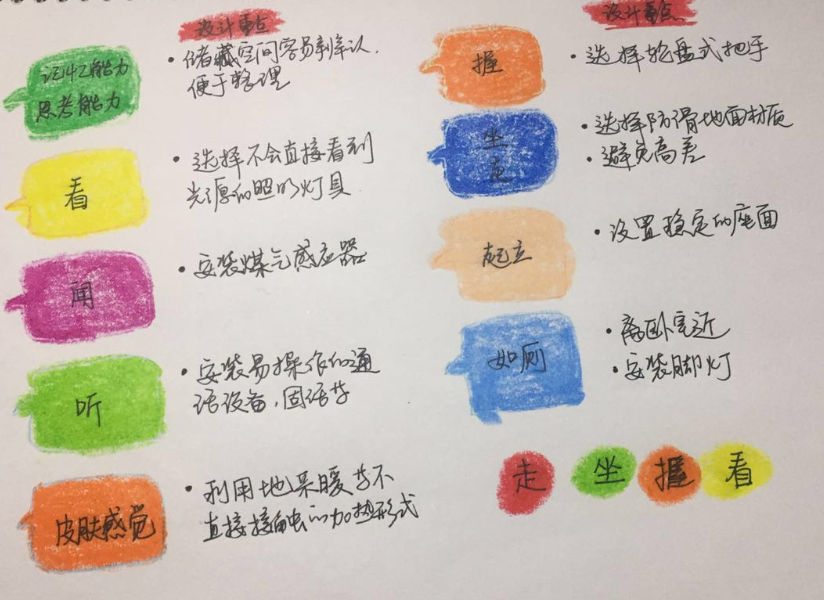 设计重点
记忆能力
思考能力
• 储藏空间容易辨认，
便于整理
看
• 选择不会直接看到
光源的照明灯具
闻
• 安装煤气感应器
听
• 安装易操作的通
话设备，固话等
皮肤感觉
• 利用地采暖等不
直接接触的加热形式
设计重点
握
• 选择轮盘式把手
坐
走
• 选择防滑地面材质
• 避免高差
起立
• 设置稳定的座面
如厕
• 离卧室近
• 安装脚灯
走 坐 握 看